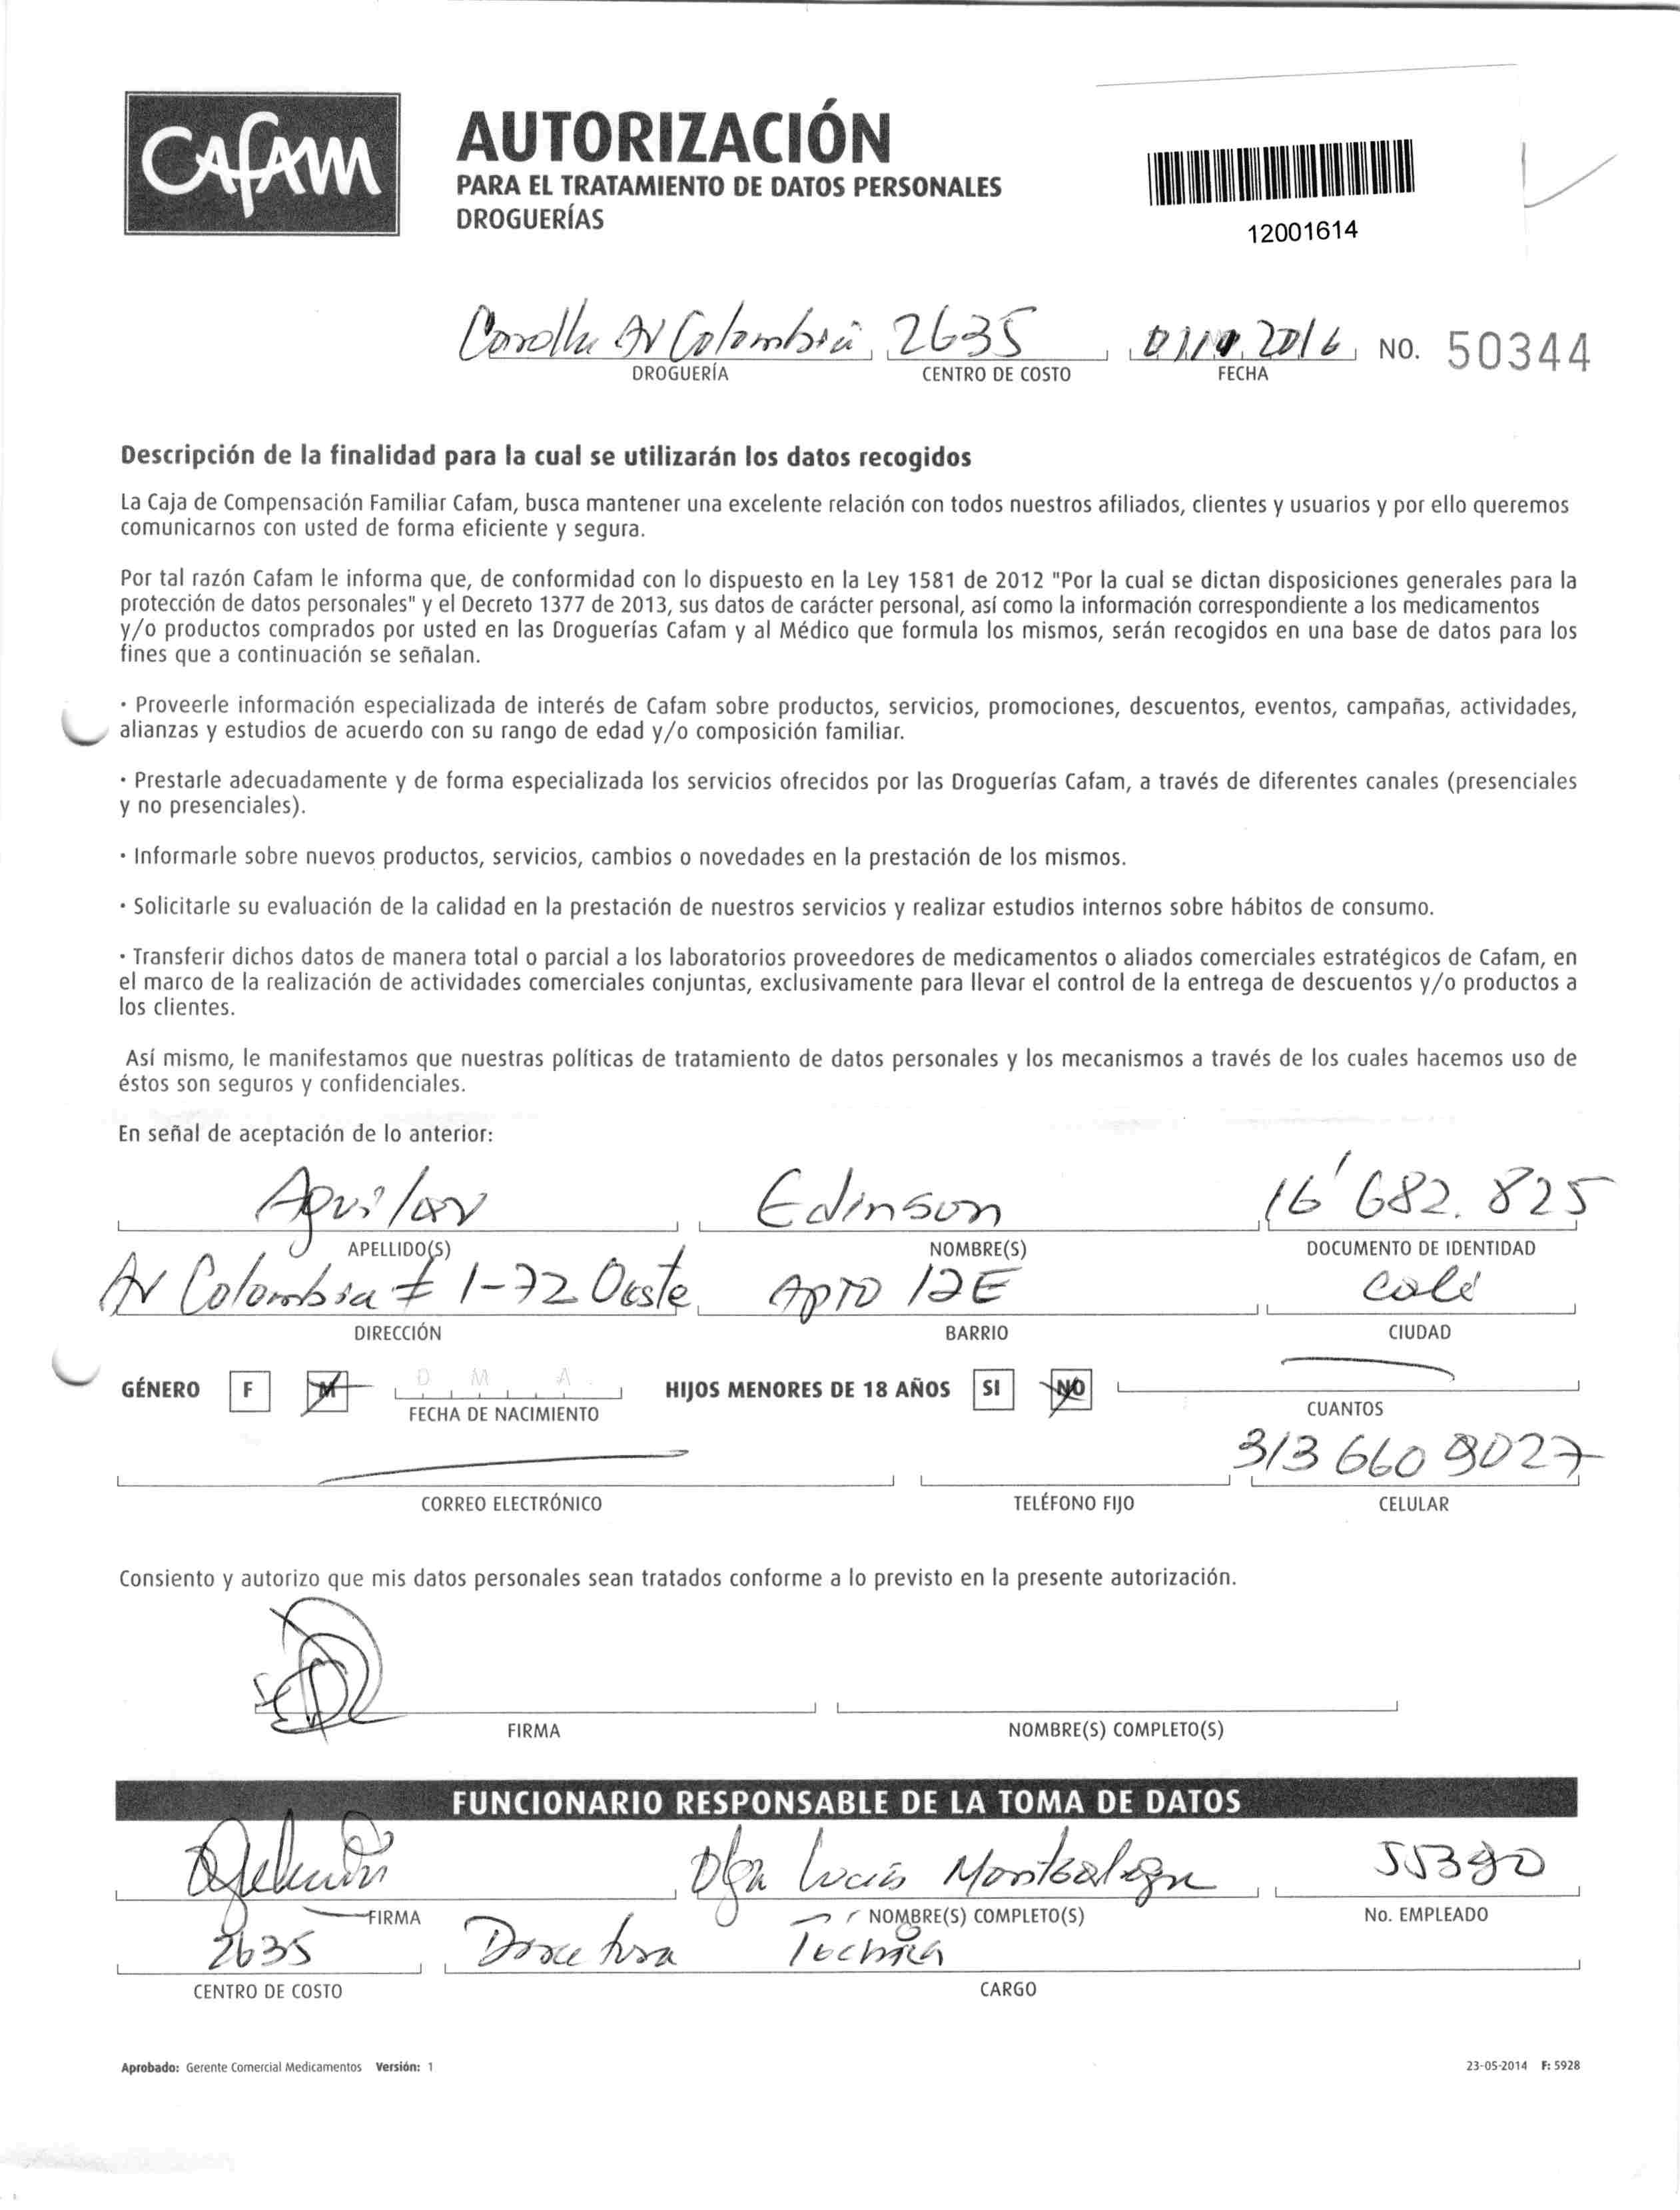 CAFAM
AUTORIZACIÓN
PARA EL TRATAMIENTO DE DATOS PERSONALES
DROGUERÍAS
12001614
Av Colombia 2635 2016 NO. 50344
DROGUERÍA CENTRO DE COSTO FECHA
Descripción de la finalidad para la cual se utilizarán los datos recogidos
La Caja de Compensación Familiar Cafam, busca mantener una excelente relación con todos nuestros afiliados, clientes y usuarios y por ello queremos
comunicarnos con usted de forma eficiente y segura.
Por tal razón Cafam le informa que, de conformidad con lo dispuesto en la Ley 1581 de 2012 "Por la cual se dictan disposiciones generales para la
protección de datos personales" y el Decreto 1377 de 2013, sus datos de carácter personal, así como la información correspondiente a los medicamentos
y/o productos comprados por usted en las Droguerías Cafam y al Médico que formula los mismos, serán recogidos en una base de datos para los
fines que a continuación se señalan.
· Proveerle información especializada de interés de Cafam sobre productos, servicios, promociones, descuentos, eventos, campañas, actividades,
alianzas y estudios de acuerdo con su rango de edad y/o composición familiar.
· Prestarle adecuadamente y de forma especializada los servicios ofrecidos por las Droguerías Cafam, a través de diferentes canales (presenciales
y no presenciales).
· Informarle sobre nuevos productos, servicios, cambios o novedades en la prestación de los mismos.
· Solicitarle su evaluación de la calidad en la prestación de nuestros servicios y realizar estudios internos sobre hábitos de consumo.
· Transferir dichos datos de manera total o parcial a los laboratorios proveedores de medicamentos o aliados comerciales estratégicos de Cafam, en
el marco de la realización de actividades comerciales conjuntas, exclusivamente para llevar el control de la entrega de descuentos y/o productos a
los clientes.
Así mismo, le manifestamos que nuestras políticas de tratamiento de datos personales y los mecanismos a través de los cuales hacemos uso de
éstos son seguros y confidenciales.
En señal de aceptación de lo anterior:
Aguilar Edinson 16'682.825
APELLIDO(S) NOMBRE(S) DOCUMENTO DE IDENTIDAD
Av Colombia # 1-72 Oeste Apto 12E Cali
DIRECCIÓN BARRIO CIUDAD
GÉNERO F M D M A HIJOS MENORES DE 18 AÑOS SI NO
FECHA DE NACIMIENTO CUANTOS
313 660 9027
CORREO ELECTRÓNICO TELÉFONO FIJO CELULAR
Consiento y autorizo que mis datos personales sean tratados conforme a lo previsto en la presente autorización.
FIRMA NOMBRE(S) COMPLETO(S)
FUNCIONARIO RESPONSABLE DE LA TOMA DE DATOS
Olga Lucía Montealegre 55390
FIRMA NOMBRE(S) COMPLETO(S) No. EMPLEADO
2635 Directora Técnica
CENTRO DE COSTO CARGO
Aprobado: Gerente Comercial Medicamentos Versión: 1 23-05-2014 F: 5928